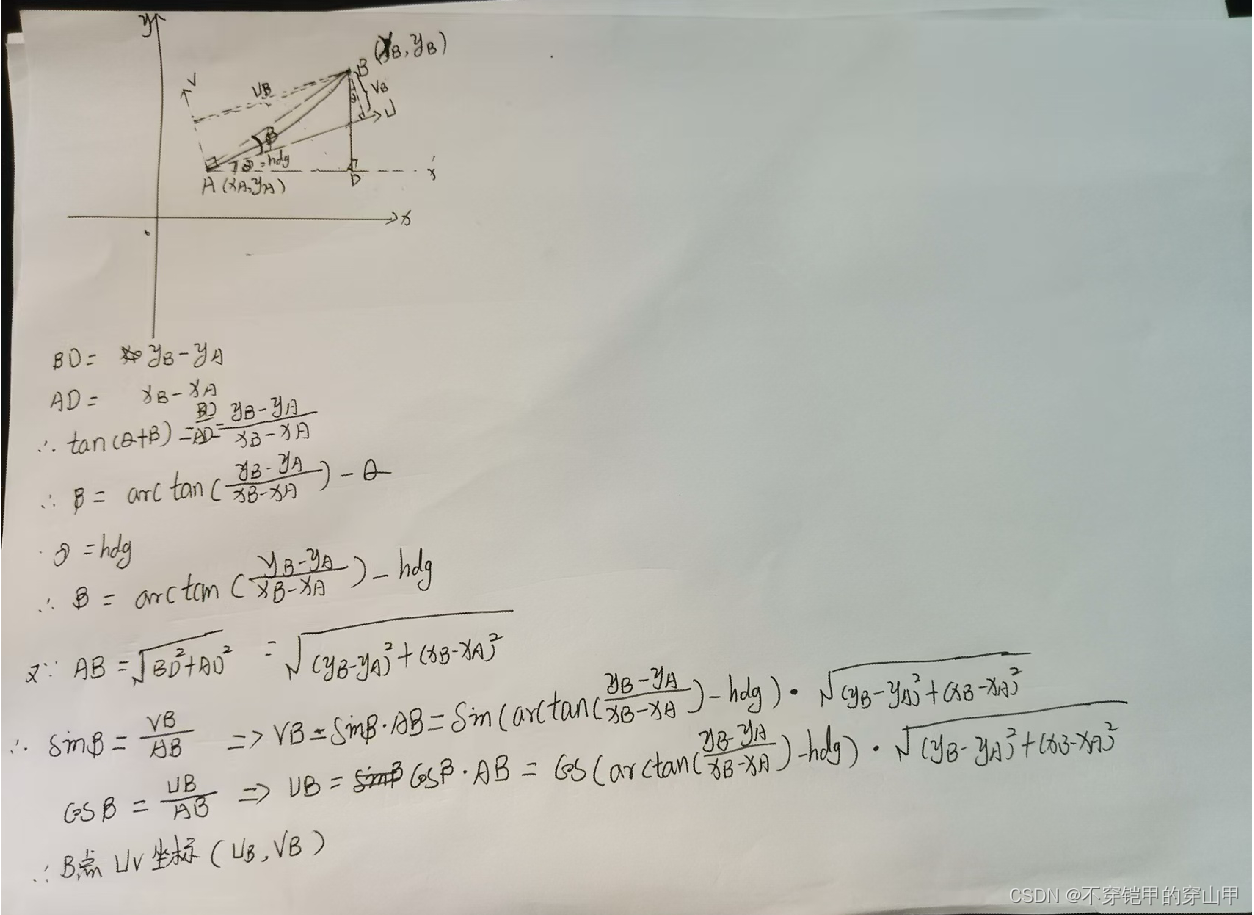 y
(xB, yB)
B
V
UB
VB
U
β
θ=hdg
A (xA, yA)
D
x'
x
BD = yB-yA
AD = xB-xA
∴ tan(θ+β) = BD/AD = (yB-yA)/(xB-xA)
∴ β = arctan((yB-yA)/(xB-xA)) - θ
∵ θ = hdg
∴ β = arctan((yB-yA)/(xB-xA)) - hdg
又∵ AB = √(BD²+AD²) = √((yB-yA)²+(xB-xA)²)
∴ sinβ = VB/AB => VB = sinβ·AB = sin(arctan((yB-yA)/(xB-xA)) - hdg) · √((yB-yA)²+(xB-xA)²)
cosβ = UB/AB => UB = cosβ·AB = cos(arctan((yB-yA)/(xB-xA)) - hdg) · √((yB-yA)²+(xB-xA)²)
∴ B点 UV坐标 (UB, VB)
CSDN @不穿铠甲的穿山甲